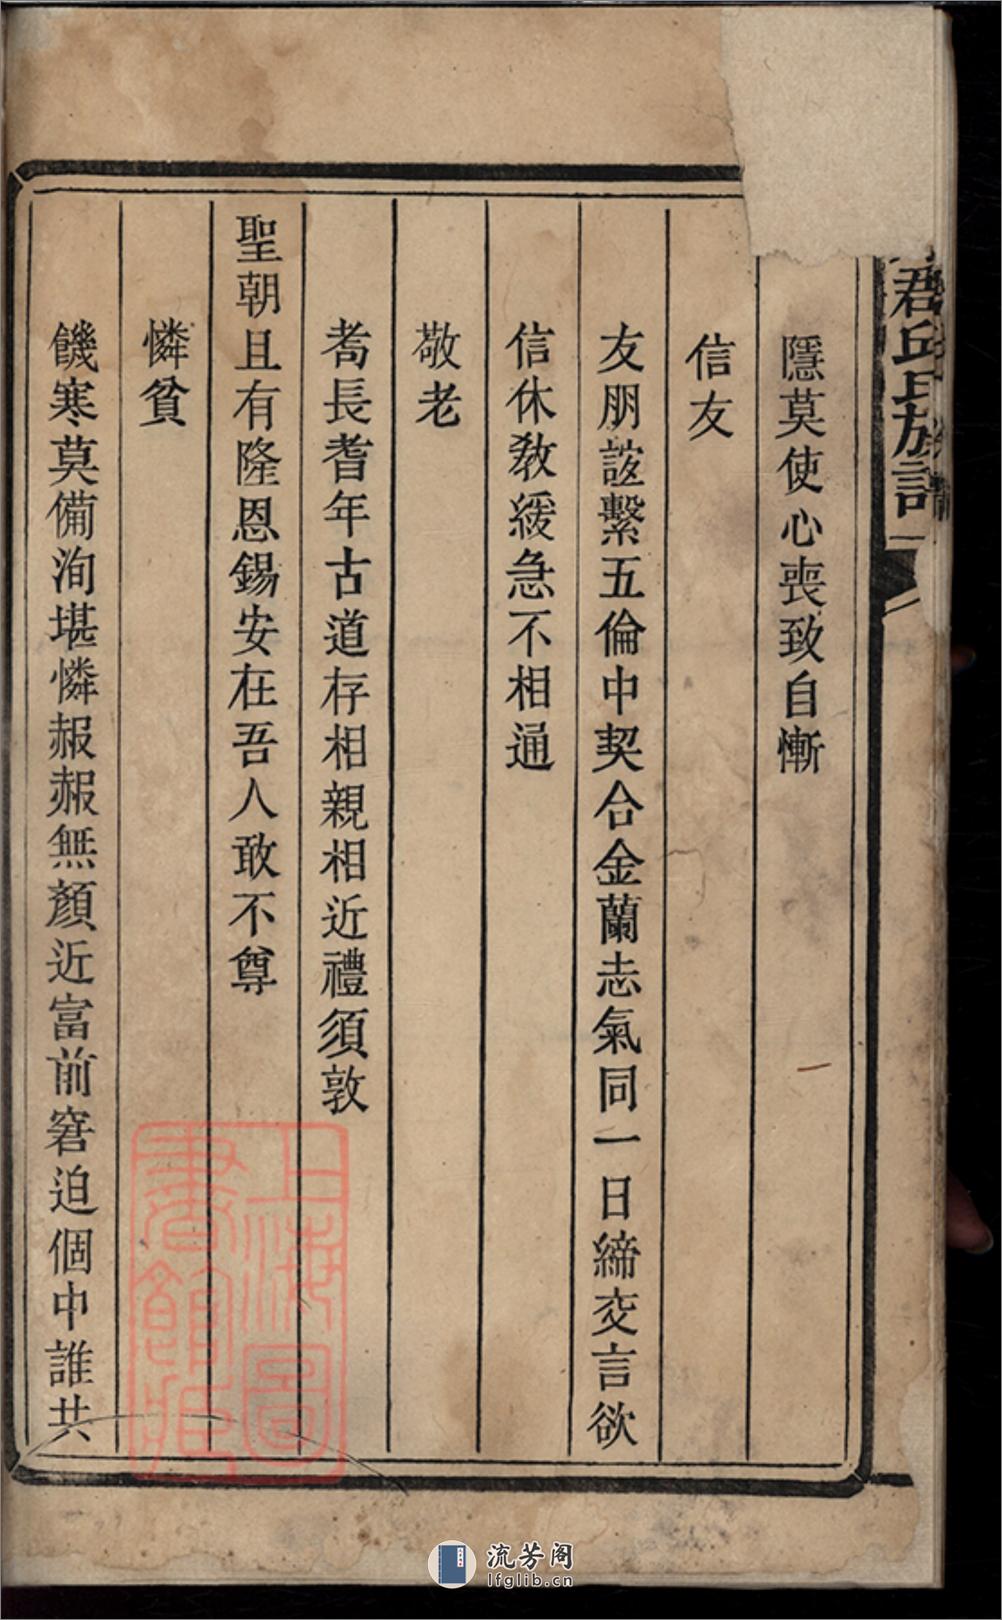 君邱氏族譜
隱莫使心喪致自慚
信友
友朋誼繫五倫中契合金蘭志氣同一日締交言欲
信休教緩急不相通
敬老
耈長耆年古道存相親相近禮須敦
聖朝且有隆恩錫安在吾人敢不尊
憐貧
饑寒莫備洵堪憐赧赧無顏近富前窘迫個中誰共
上海圖書館藏
流芳阁
lfglib.cn